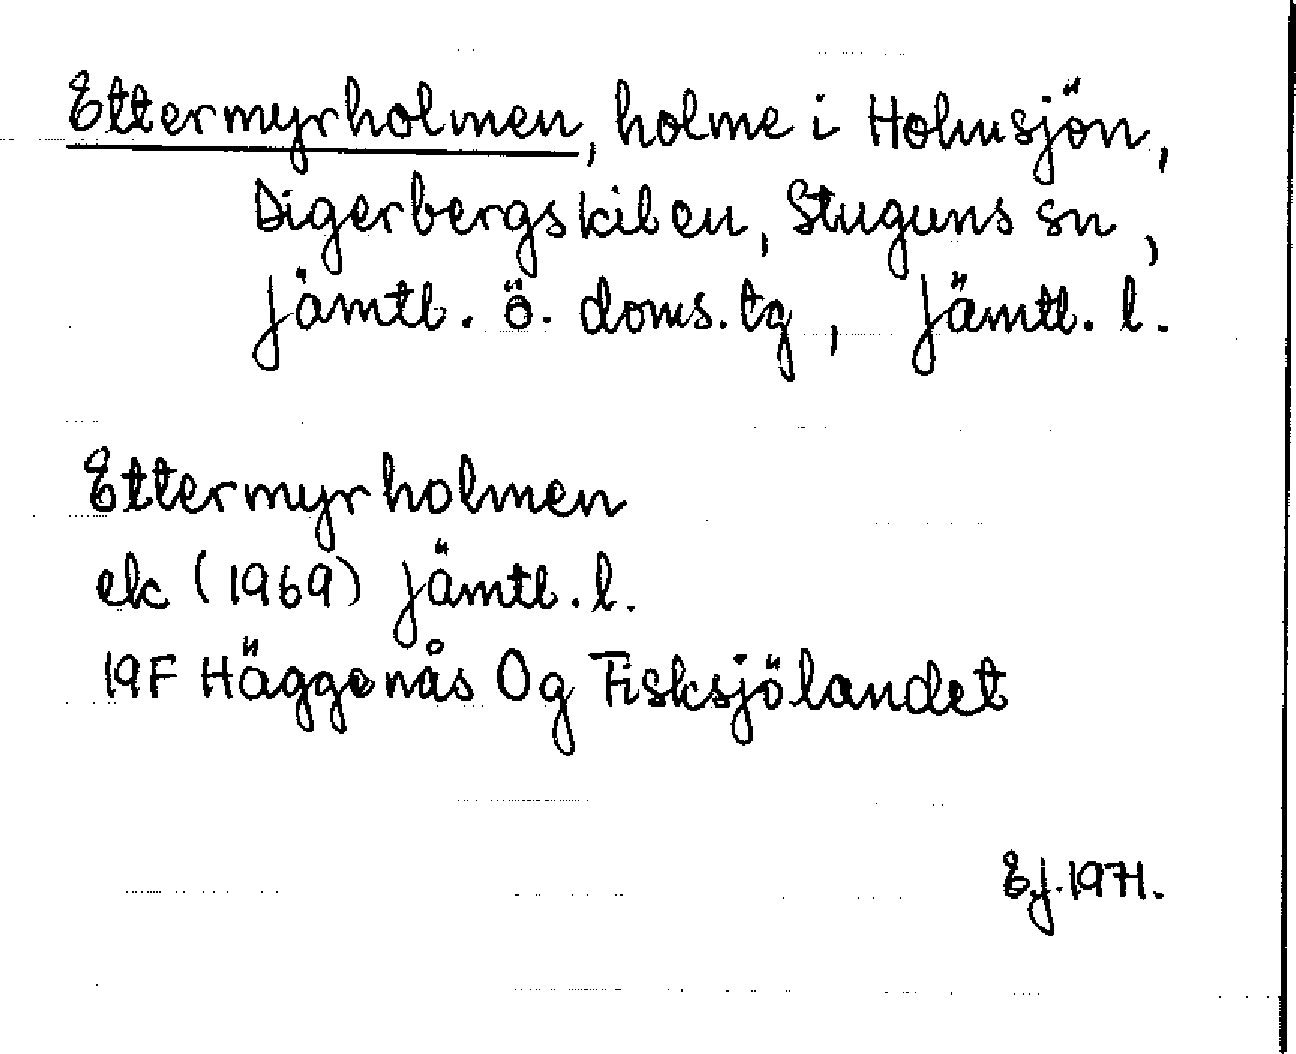 Ettermyrholmen, holme i Holmsjön,
Digerbergskilen, Stuguns sn,
Jämtl. ö. doms. tg, Jämtl. l.
Ettermyrholmen
ek (1969) Jämtl. l.
19F Häggenås Og Fisksjölandet
E.J. 1971.